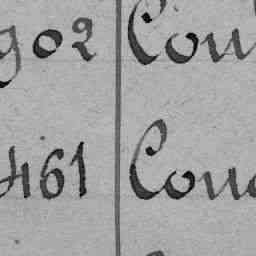 902 Coul
461 Coud